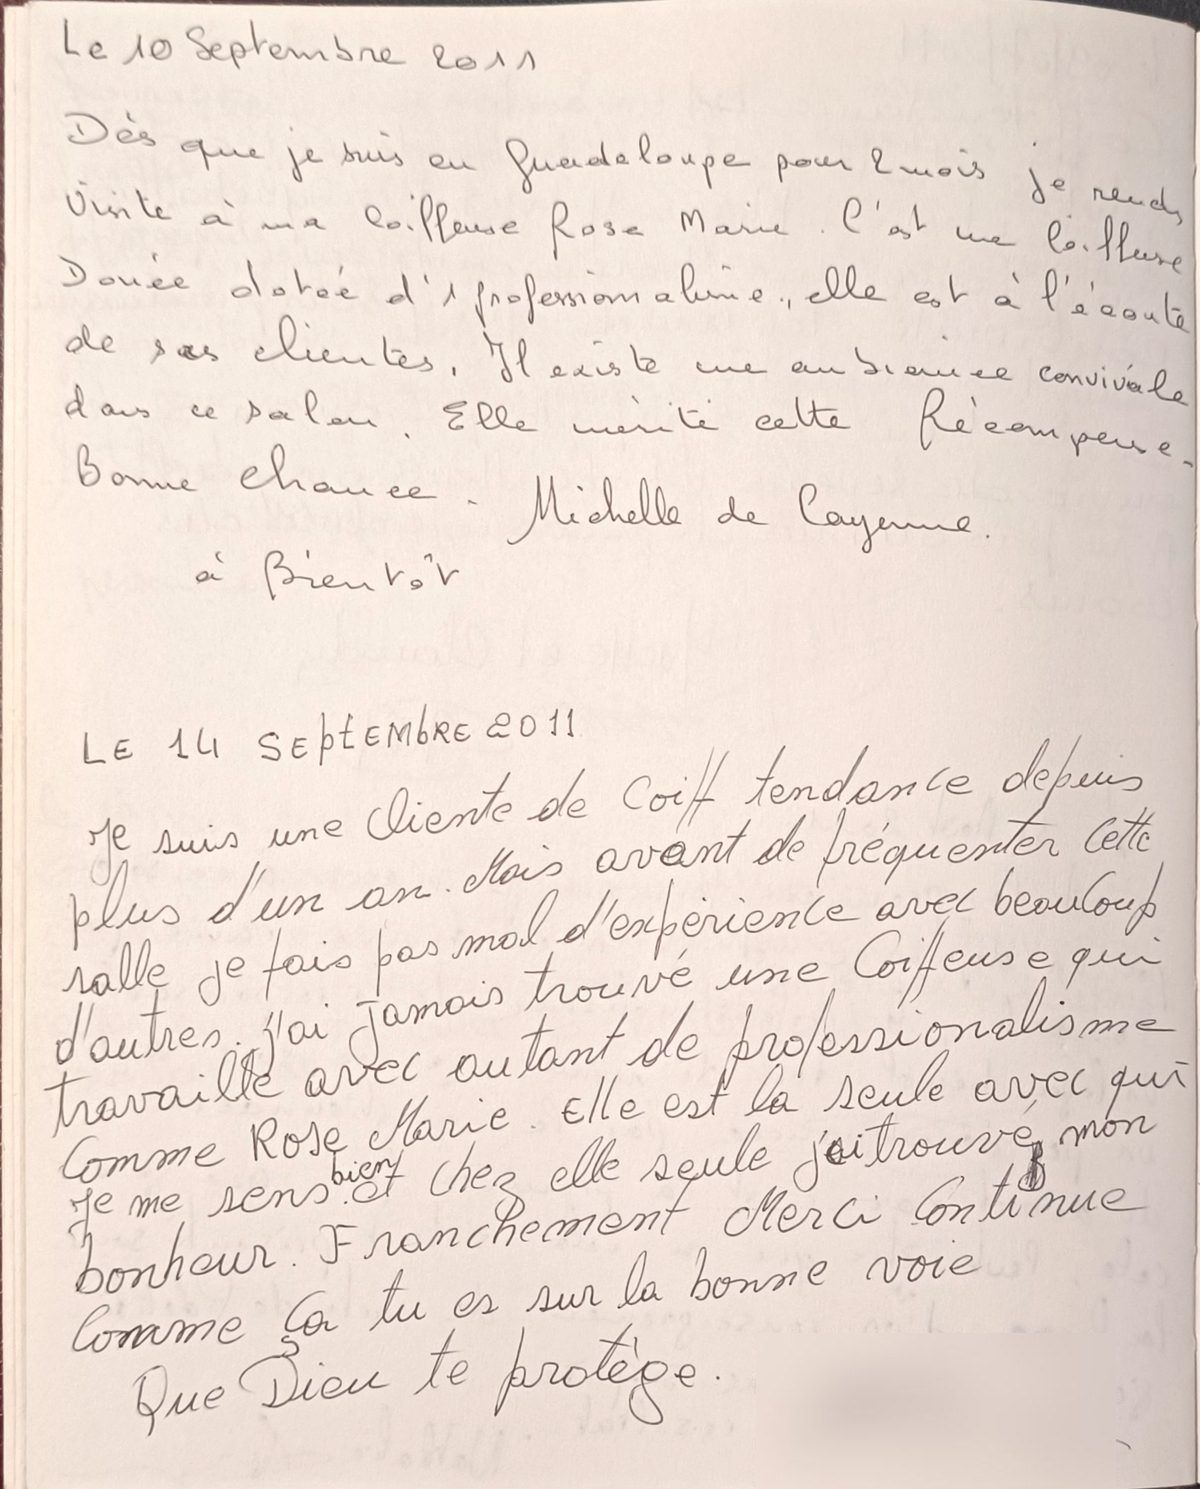 Le 10 Septembre 2011
Dès que je suis en Guadeloupe pour 2 mois je rends
Visite à ma Coiffeuse Rose Marie. C'est une Coiffeuse
Douée dotée d'1 professionnalisme, elle est à l'écoute
de ses clientes. Il existe une ambiance conviviale
dans ce salon. Elle mérite cette Récompense.
Bonne Chance. Michelle de Cayenne.
à Bientôt
LE 14 SEPTEMBRE 2011
Je suis une Cliente de Coiff tendance depuis
plus d'un an. Mais avant de fréquenter Cette
salle je fais pas mal d'expérience avec beaucoup
d'autres. j'ai jamais trouvé une Coiffeuse qui
travaille avec autant de professionalisme
Comme Rose Marie. Elle est la seule avec qui
Je me sens bien et chez elle seule j'ai trouvé mon
bonheur. Franchement Merci Continue
Comme ça tu es sur la bonne voie
Que Dieu te protège.